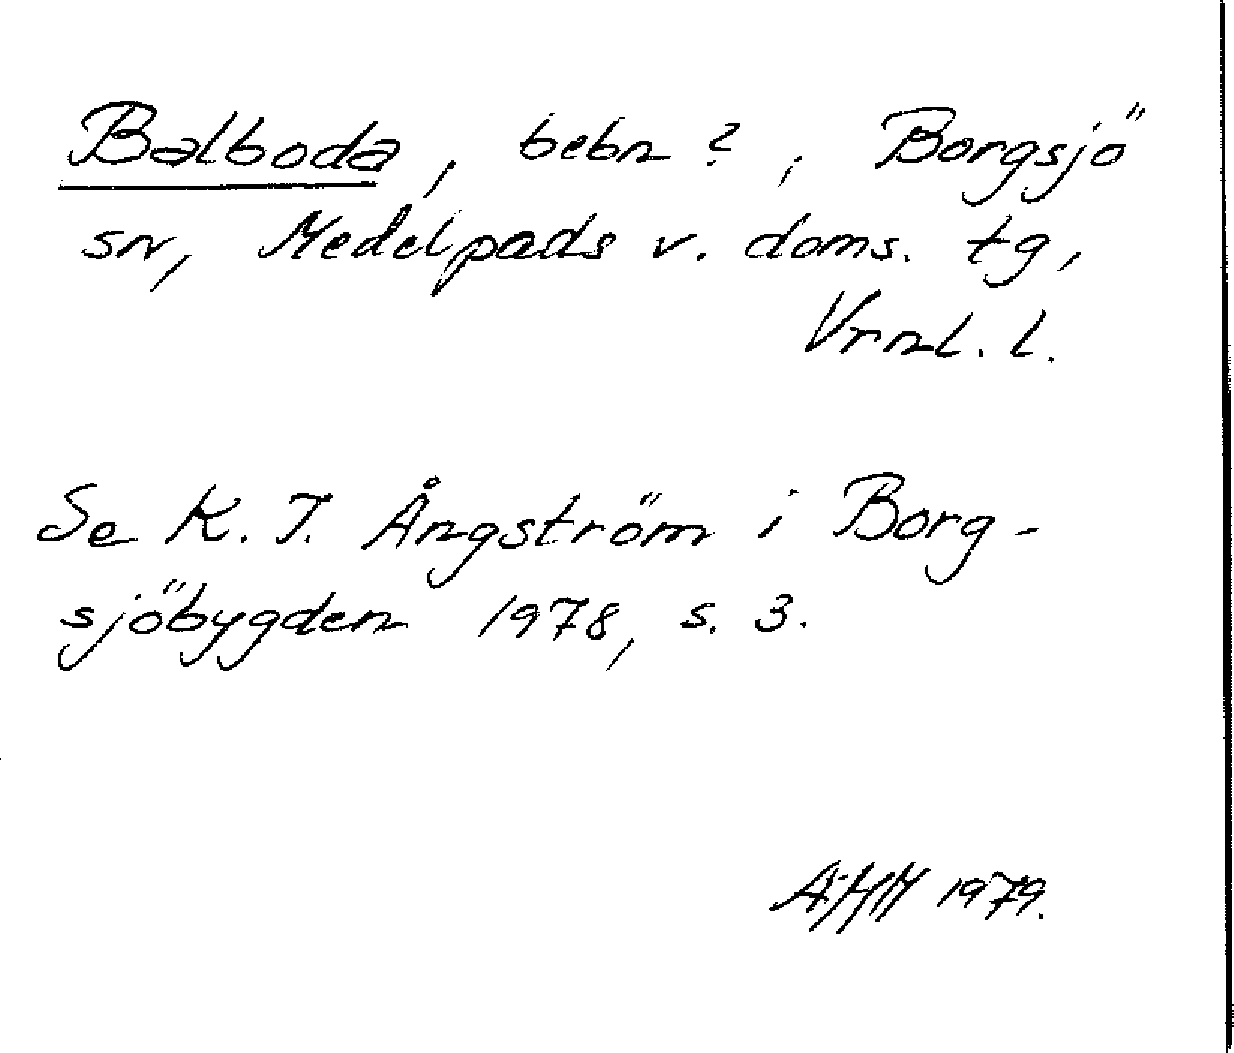 Balboda, bebn?, Borgsjö
sn, Medelpads v. doms. tg,
Vrnl. l.
Se K. T. Ångström i Borg-
sjöbygden 1978, s. 3.
1979.